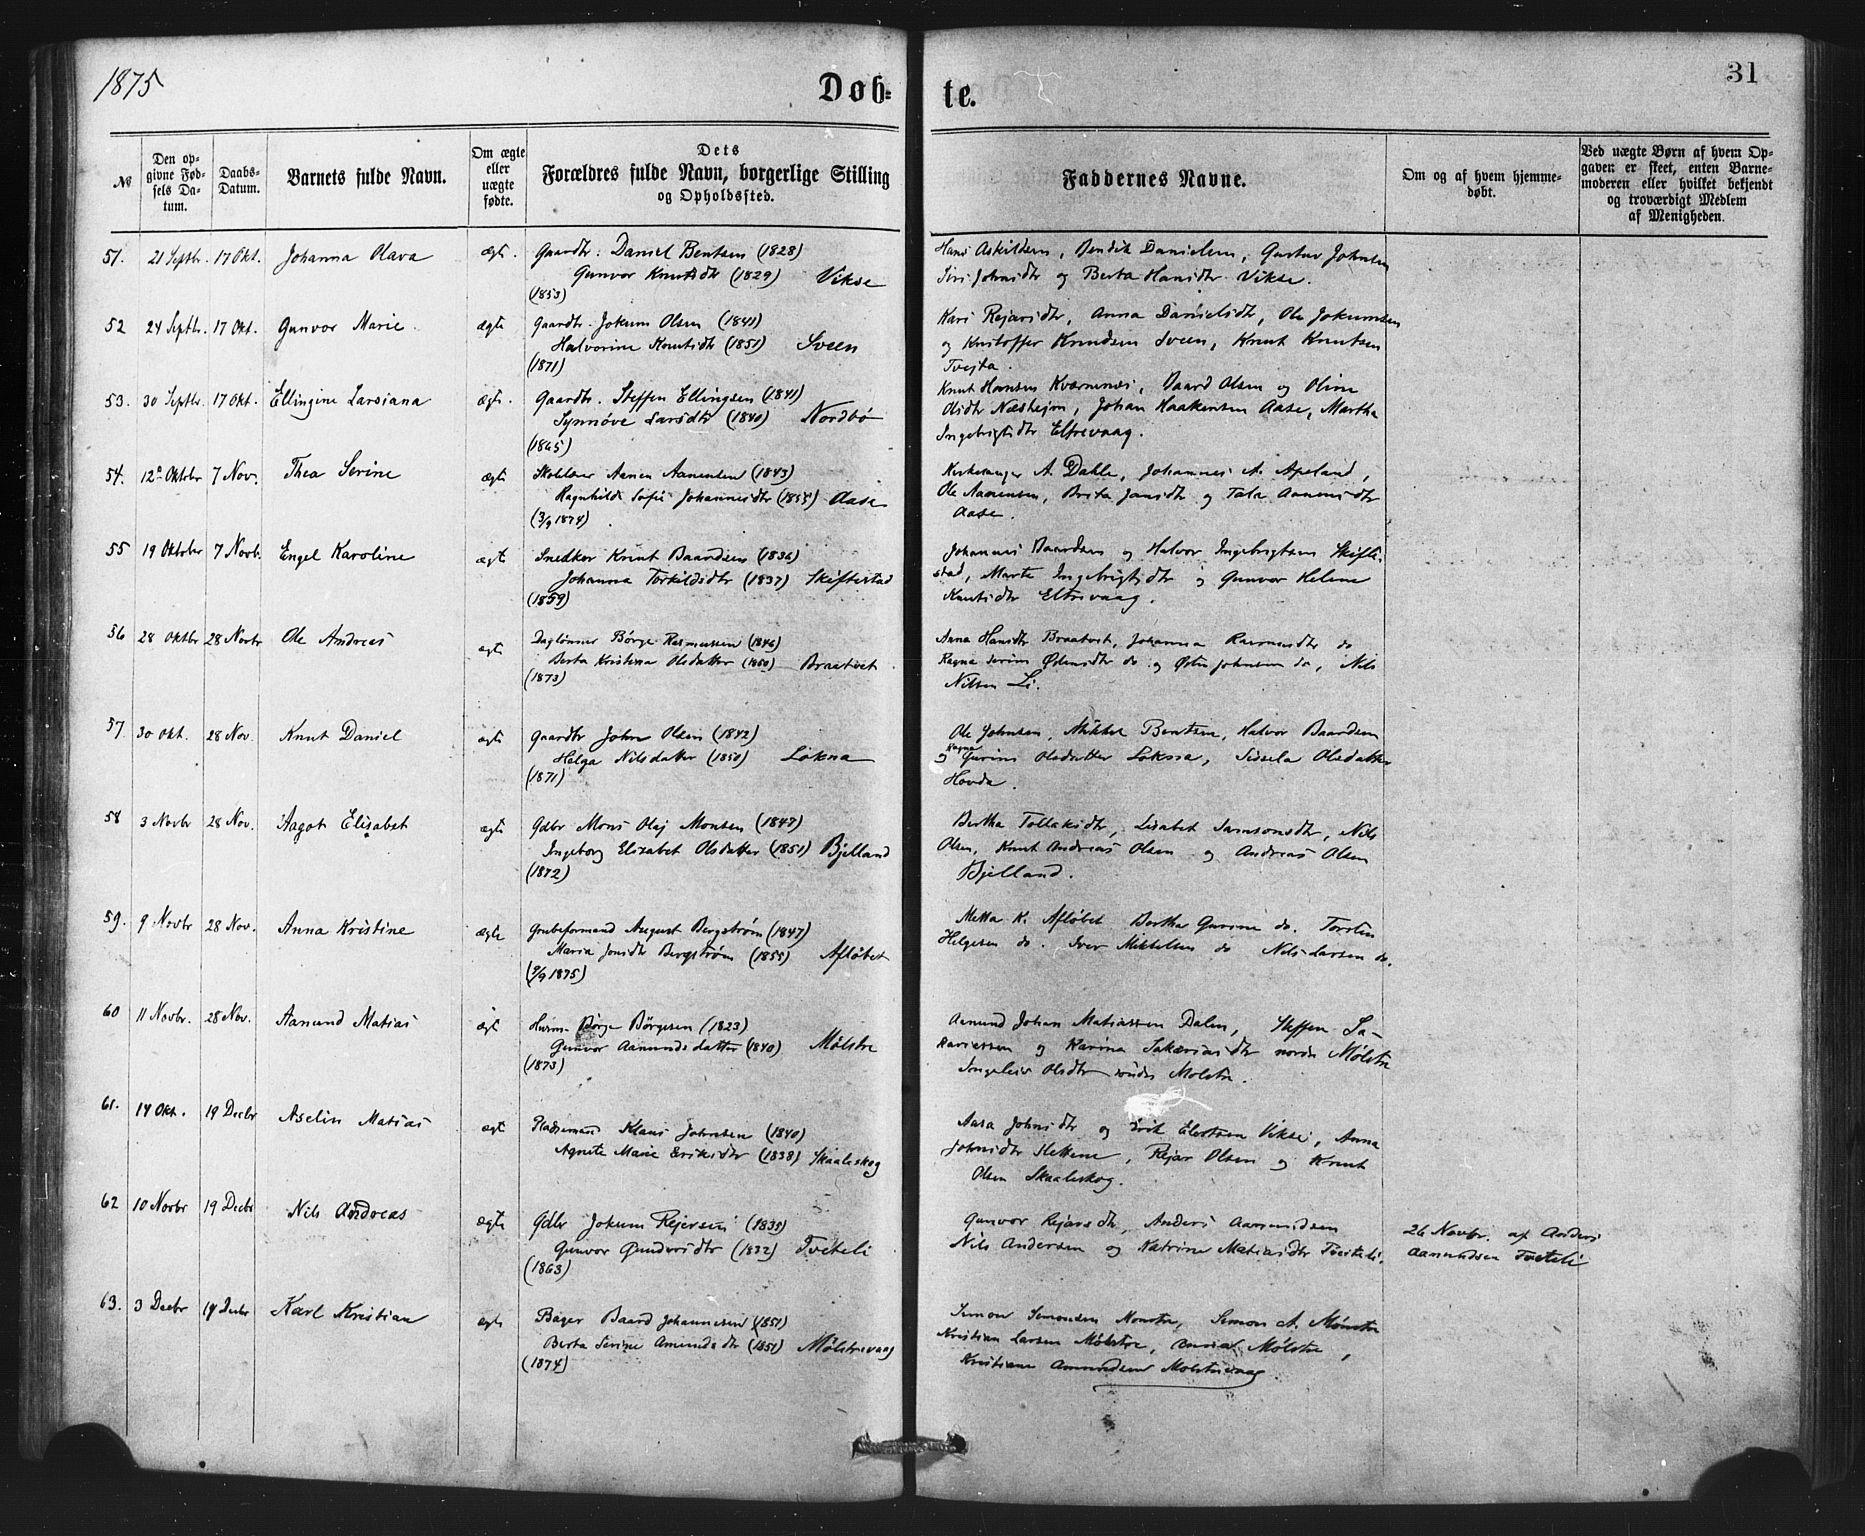 1875
Døb-
te.
31
№
Den op-
givne Fød-
sels Da-
tum.
Daabs-
Datum.
Barnets fulde Navn.
Om ægte
eller
uægte
fødte.
Dets
Forældres fulde Navn, borgerlige Stilling
og Opholdssted.
Faddernes Navne.
Om og af hvem hjemme-
døbt.
Ved uægte Børn af hvem Op-
gaven er skeet, enten Barne-
moderen eller hvilket bekjendt
og troværdigt Medlem
af Menigheden.
51. 21 Septbr. 17 Okt. Johanna Olava ægt. Gaardbr. Daniel Bentsen (1828)
Gunvor Knutsdtr (1829) Vikse
(1853)
Hans Askildsen, Bendik Danielsen, Gustav Johnsen
Siri Johnsdtr og Berta Hansdtr Vikse.
52 24 Septbr. 17 Okt. Gunvor Marie ægte Gaardbr. Jokum Olsen (1841)
Halvorine Knutsdtr (1851) Sveen
(1871)
Kari Rejarsdtr, Anna Danielsdtr, Ole Jokumsen
og Kristoffer Knudsen Sveen, Knut Knutsen
Tvejta.
53. 30 Septbr. 17 Okt. Ellingine Larsiana ægte. Gaardbr. Steffen Ellingsen (1841)
Synnøve Larsdtr (1840) Nordbø
(1865)
Knut Hansen Kværnenes, Baard Olsen og Oline
Olsdtr Næshejm, Johan Haakensen Aase, Martha
Ingebrigtsdtr Eltrevaag.
54. 12te Oktbr 7 Nov. Thea Serine ægte Skolelær Aanen Aanensen (1843)
Ragnhilde Sofie Johannesdtr (1855) Aase
(3/9 1874)
Kirkesanger A. Dahle, Johannes A. Apeland,
Ole Aanensen, Brita Jansdtr og Tala Aanensdtr
Aase.
55 19 Oktober 7 Novb. Engel Karoline ægte Snedker Knut Baardsen (1836)
Johanna Torkildsdtr (1837) Skiftestad
(1859)
Johannes Baardsen og Halvor Ingebrigtsen Skifte-
stad, Marte Ingebrigtsdtr og Gunvor Helene
Knutsdtr Eltrevaag.
56 28 Oktbr 28 Novbr Ole Andreas ægte Daglønner Børge Rasmussen (1846)
Berta Kristina Olsdatter (1850) Braatvet
(1873)
Anna Hansdtr Braatvet, Johanna Rasmusdtr do
Ragna Serine Østensdtr do og Østen Johnsen do, Nils
Nilsen Li.
57 30 Okt. 28 Nov. Knut Daniel ægte Gaardbr John Olsen (1842)
Helga Nilsdatter (1850) Løkna
(1871)
Ole Johnsen, Mikkel Bentsen, Halvor Baardsen
og Ragna Gurine Olsdatter Løkna, Sidsela Olsdatter
Hovda.
58 3 Novbr 28 Nov. Aagot Elisabet ægte Gdbr Mons Olaj Monsen (1847)
Ingeborg Elizabet Olsdatter (1851) Bjelland
(1872)
Bertha Tollaksdtr, Lisabet Samsonsdtr, Nils
Olsen, Knut Andreas Olsen og Andreas Olsen
Bjelland.
59. 9 Novbr 28 Nov. Anna Kristine ægte Grubeformand August Bergstrøm (1847)
Maria Jonsdtr Bergstrøm (1855) Afløbet
(9/9 1875)
Metta K. Afløbet Bertha Gurine do. Torsten
Helgesen do. Iver Mikkelsen do Nils Larsen do.
60 11 Novbr. 28 Nov. Aamund Matias ægt Husm. Børge Børgesen (1823)
Gunvor Aamundsdatter (1840) Mølstre
(1873)
Aamund Johan Matiassen Dalen, Steffen Sa-
kariassen og Karina Sakariasdtr nordre Mølstre
Ingeleiv Olsdtr søndre Mølstre.
61. 14 Okt. 19 Decbr Aselin Matias ægte Pladsemand Klaus Johnsen (1840)
Agnete Marie Eriksdtr (1838) Skaaleskog
Aasa Johnsdtr og Erik Elertsen Vikse, Anna
Johnsdtr Slettene, Rejar Olsen og Knut
Olsen Skaaleskog.
62 10 Novbr 19 Decbr Nils Andreas ægte Gdbr Jokum Rejersen (1835)
Gunvor Gundersdtr (1832) Tveteli
(1863)
Gunvor Rejarsdtr, Anders Aamundsen
Nils Andersen og Katrine Matiasdtr Tveiteli.
26 Novbr. af Anders
Aamundsen Tveteli
63. 3 Decbr 19 Decbr Karl Kristian ægte Bager Baard Johannesen (1851)
Berta Serine Amundsdtr (1851) Mølstrevaag
(1874)
Simon Simonsen Monstre, Simon A. Mønstre
Kristian Larsen Mølstre, Mølstre,
Kristiane Amundsen Mølstrevaag